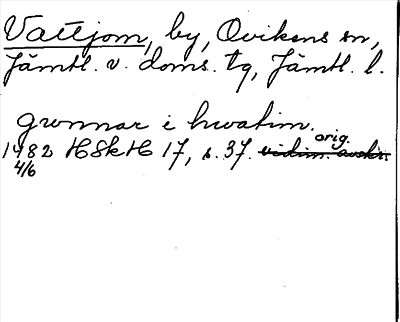 Vattjom, by, Ovikens sn,
Jämtl. v. doms. tg, Jämtl. l.
grwnnar i hwatim.
orig.
1482 HSkH 17, s. 37. vidim. avskr.
4/6